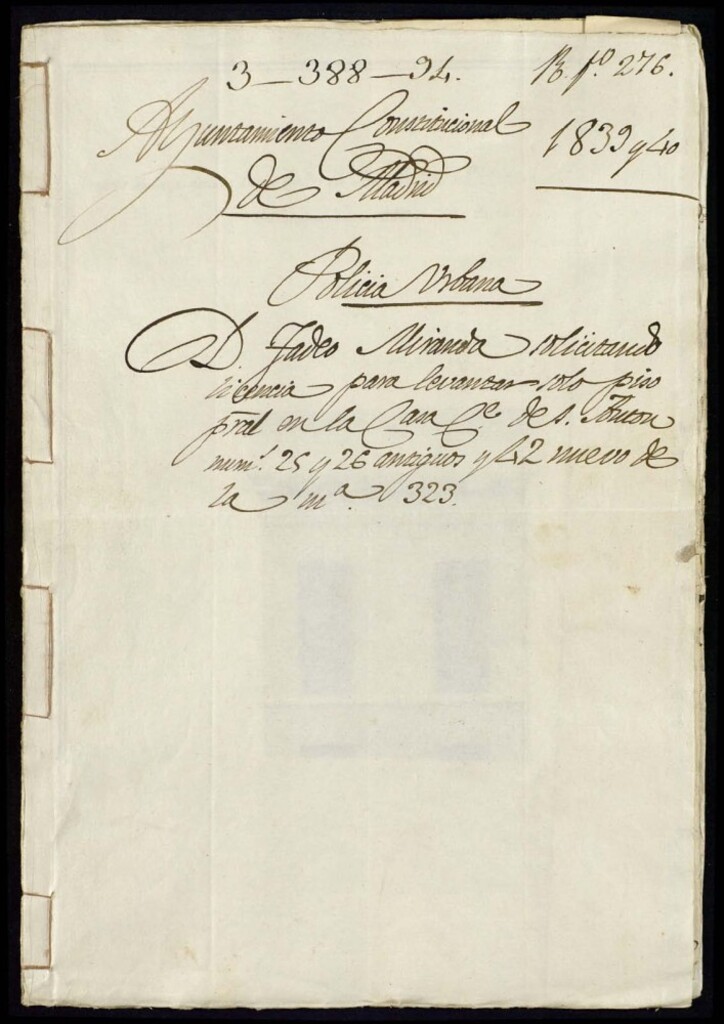 3-388-94.
R. fº. 276.
Ayuntamiento Constitucional
de Madrid
1839 y 40
Policia Urbana
D. Tadeo Miranda solicitando
licencia para levantar solo piso
pral en la Casa Cᵉ. de S. Anton
num.ˢ 25 y 26 antiguos y 42 nuevo de
la mª. 323.